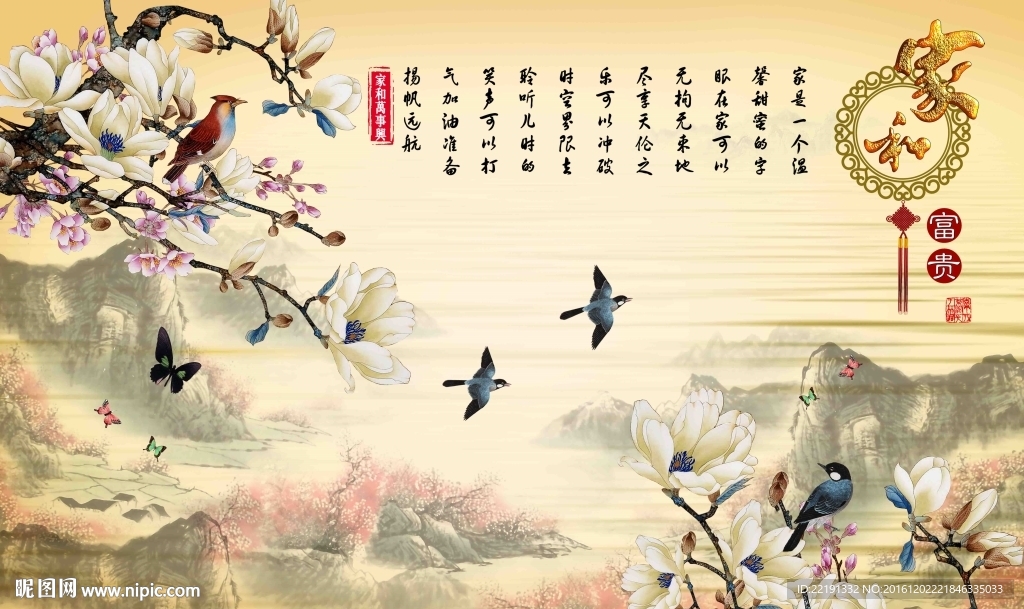 家和
富贵
家是一个温
馨甜蜜的字
眼在家可以
无拘无束地
尽享天伦之
乐可以冲破
时空界限去
聆听儿时的
笑声可以打
气加油准备
揚帆远航
家和萬事興
昵图网 www.nipic.com
ID:22191332 NO:20161202221846335033